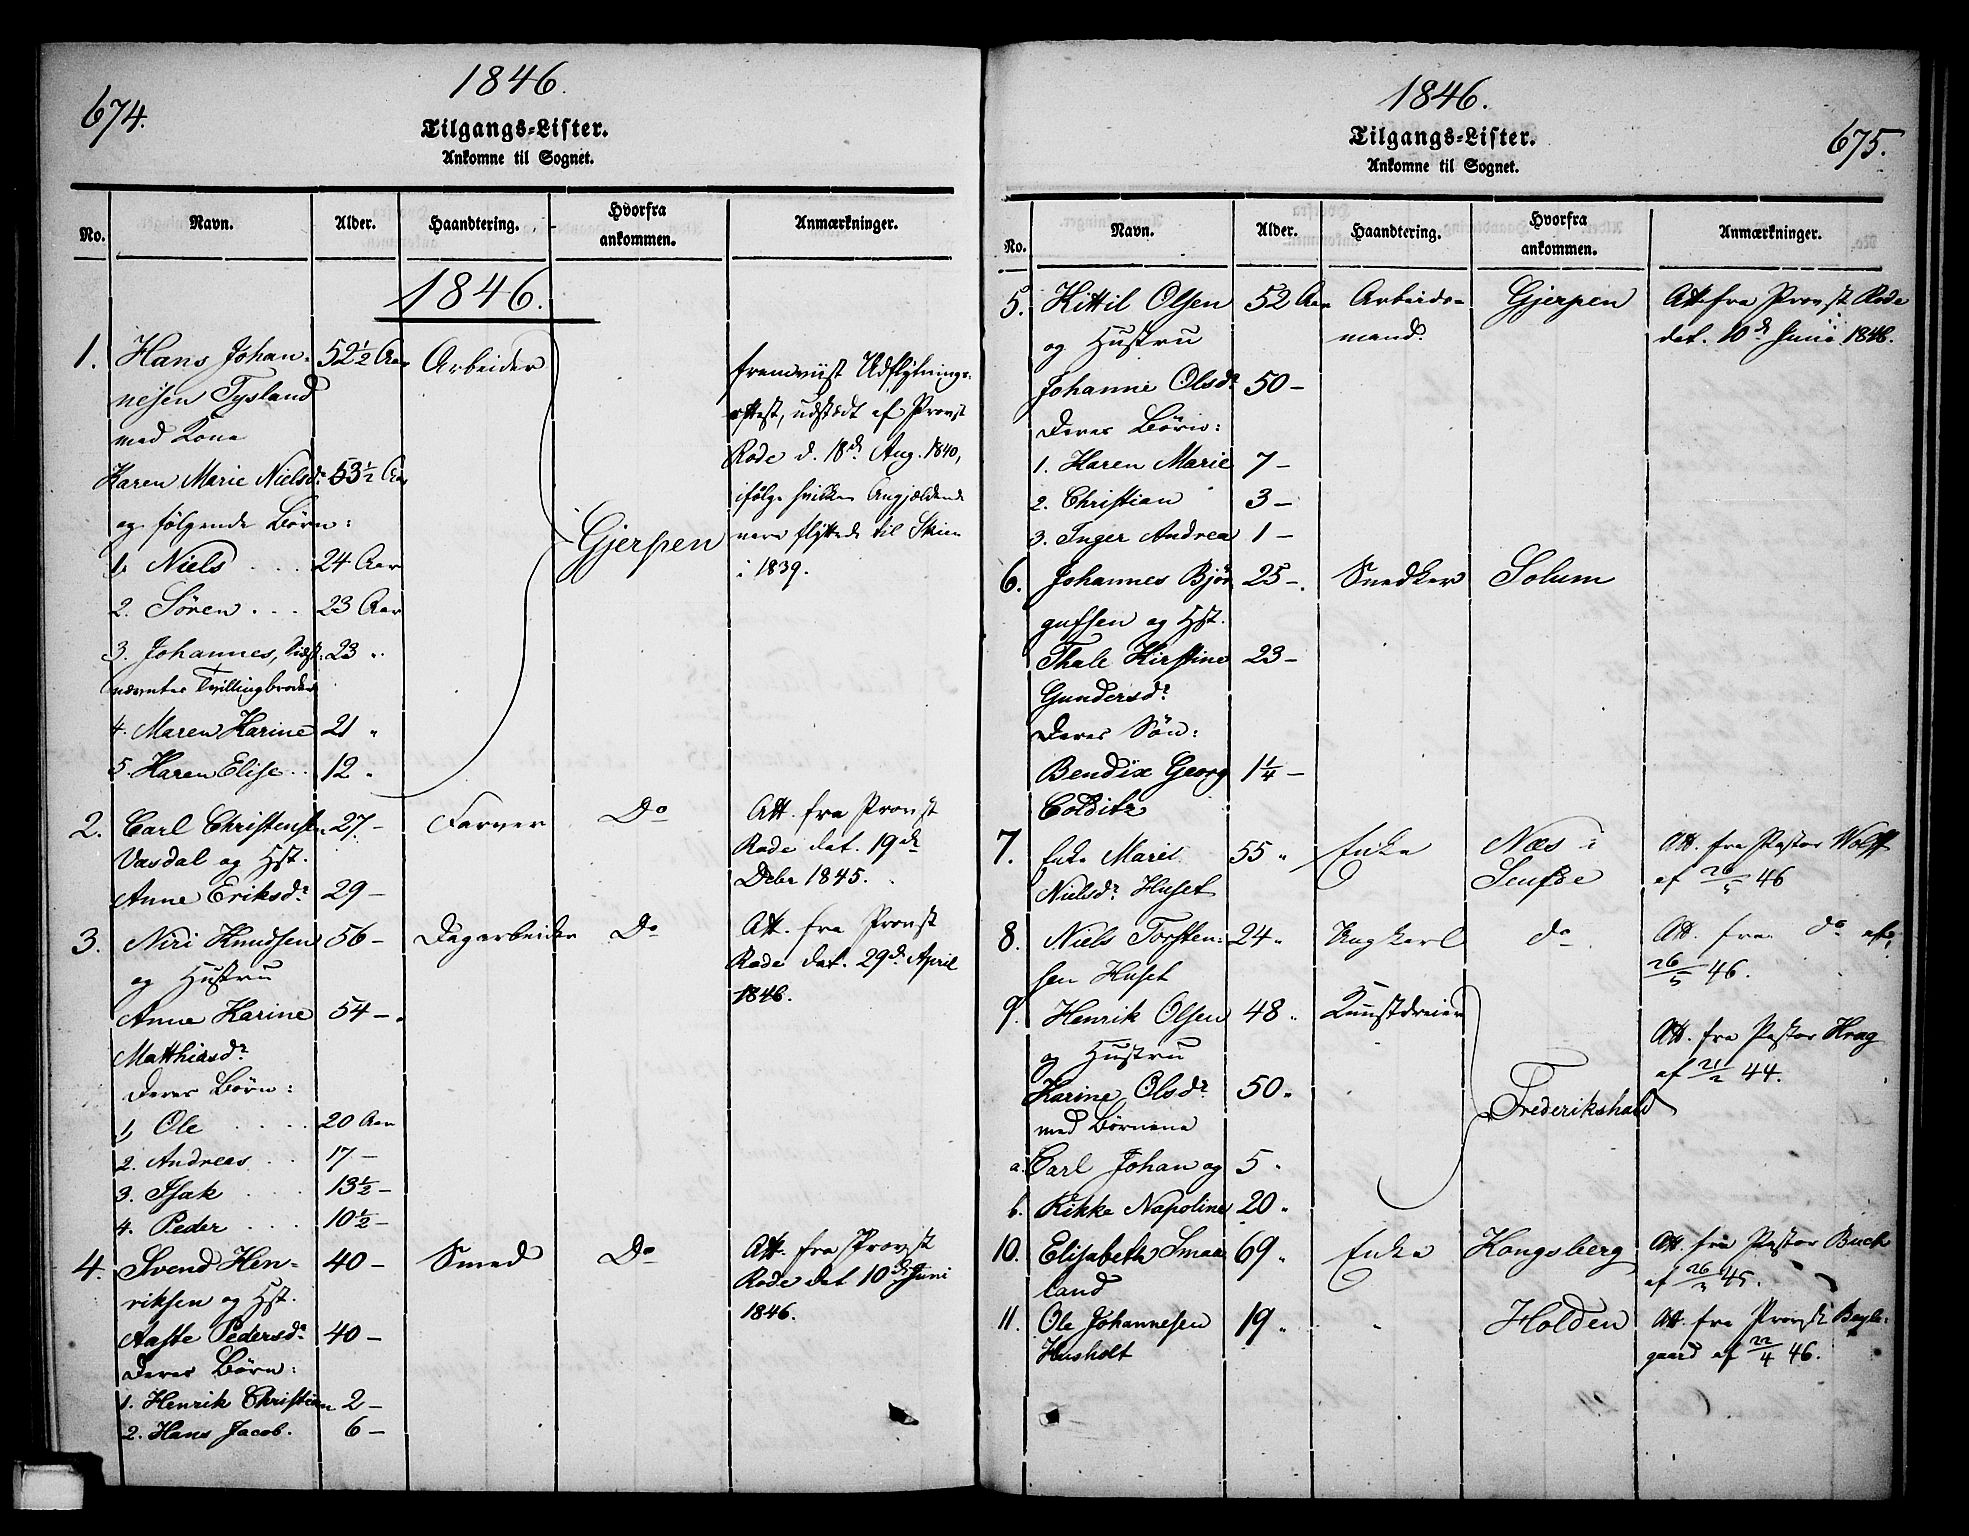 674.
1846.
Tilgangs-Lister.
Ankomne til Sognet.
No. Navn. Alder. Haandtering. Hvorfra ankommen. Anmærkninger.
1846.
1. Hans Johan- 52½ Aar Arbeider
nesen Tysland
med Kone
Karen Marie Nielsdr 53½ Aar
og følgende Børn:
1, Niels . . . 24 Aar
2. Sören . . . 23 Aar
3. Johannes, sidst- 23 "
nævntes Tvillingbroder
4. Maren Karine 21 "
5. Karen Elise . . 12 "
Gjerpen
fremviist Udflytnings-
attest, udstædt af Provst
Rode d. 18de Aug. 1840,
ifølge hvilken Angjældende
flyttede til Skien
i 1839.
2. Carl Christensen 27 - Farver Do Att. fra Provst
Vasdal og Hst. Rode dat. 19de
Anne Eriksdr 29 - Debr 1845.
3. Niri Knudsen 56 - Dagarbeider Do Att. fra Provst
og Hustru Rode dat. 29de April
Anne Karine 54 - 1846.
Matthiasdr
deres Børn:
1, Ole . . . . 20 Aar
2. Andreas . . 17 -
3. Isak . . . 13½ -
4. Peder . . . 10½ -
4. Svend Hen- 40 - Smed Do Att. fra Provst
riksen og Hst. Rode dat 10de Juni
Aaste Pedersdr 40 - 1846.
deres Børn:
1. Henrik Christian 2 -
2. Hans Jacob. 6 -
1846.
Tilgangs-Lister.
Ankomne til Sognet.
675.
No. Navn. Alder. Haandtering. Hvorfra ankommen. Anmærkninger.
5. Kittil Olsen 52 Aar Arbeids- Gjerpen Att. fra Provst Rode
og Hustru mand. dat. 10de Juni 1846.
Johanne Olsdr 50 -
deres Børn:
1. Karen Marie 7 -
2. Christian 3 -
3. Inger Andrea 1 -
6. Johannes Bjør 25 - Snedker Solum
gufsen og Hst.
Thale Kirstine 23 -
Gundersdr
deres Søn:
Bendix Georg 1¼ -
Colditz
7. Enke Maren 55 " Enke Næs i Att. fra Pastor Wolff
Nielsdr Huset Saufde af 26/5 46
8. Niels Torsten- 24 " Ungkarl do Att. fra do af
sen Huset 26/5 46.
9. Henrik Olsen 48 " Kunstdreier
og Hustru Att. fra Pastor Krag
Karine Olsdr 50 " af 21/2 44.
med Børnene Frederikshald
a. Carl Johan og 5 "
b. Rikke Napoline 20 "
10. Elisabeth Smaa 69 " Enke Kongsberg Att. fra Pastor Buch
land af 26/3 45.
11. Ole Johannesen 19 " " Holden Att. fra Provst Bøyle-
Husholt gaard af 22/4 46.